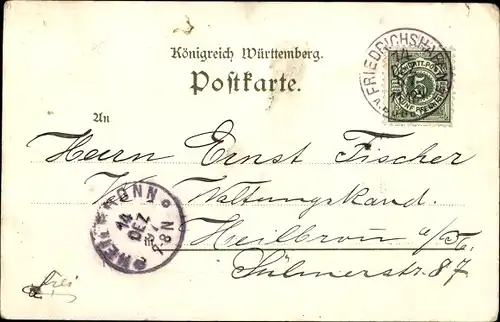 Königreich Württemberg.
Postkarte.
FRIEDRICHSHAFEN
14
K. WÜRTT. POST
5
FÜNF PFENNIG
An
Herrn Ernst Fischer
Verwaltungskand.
Heilbronn a/N.
Sülmerstr. 87
HEILBRONN
14
DEZ
7-8 N